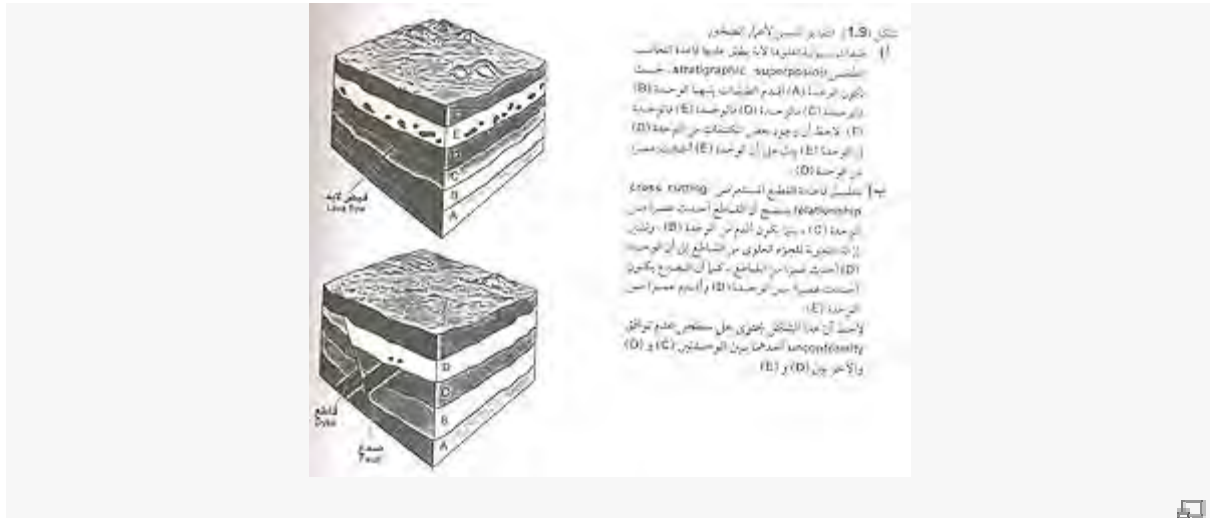 شكل (1.9) التقدير النسبي لأعمار الصخور
stratigraphic superposition حيث
تكون الوحدة (A) أقدم الطبقات يليها الوحدة (B)
فالوحدة (C) فالوحدة (D) فالوحدة (E) فالوحدة
(F) لاحظ أن وجود بعض من الوحدة (D)
في الوحدة (E) يدل على أن الوحدة (E) أحدث عمرا
من الوحدة (D).
ب) بتطبيق قاعدة القطع المستعرض cross cutting
relationship يتضح أن القاطع أحدث عمرا من
الوحدة (C)، بينما يكون أقدم من الوحدة (B)، وتشير
إزالة التعرية للجزء العلوي من القاطع إلى أن الوحدة
(D) أحدث عمرا من القاطع، كما أن الصدع يكون
أحدث عمرا من الوحدة (D) وأقدم عمرا من
الوحدة (E).
لاحظ أن هذا الشكل يحتوي على سطحي عدم توافق
unconformity أحدهما بين الوحدتين (C) و (D)
والآخر بين (D) و (E)
E
D
C
B
A
فيض لابه
Lava flow
D
B
A
قاطع
Dyke
صدع
Fault